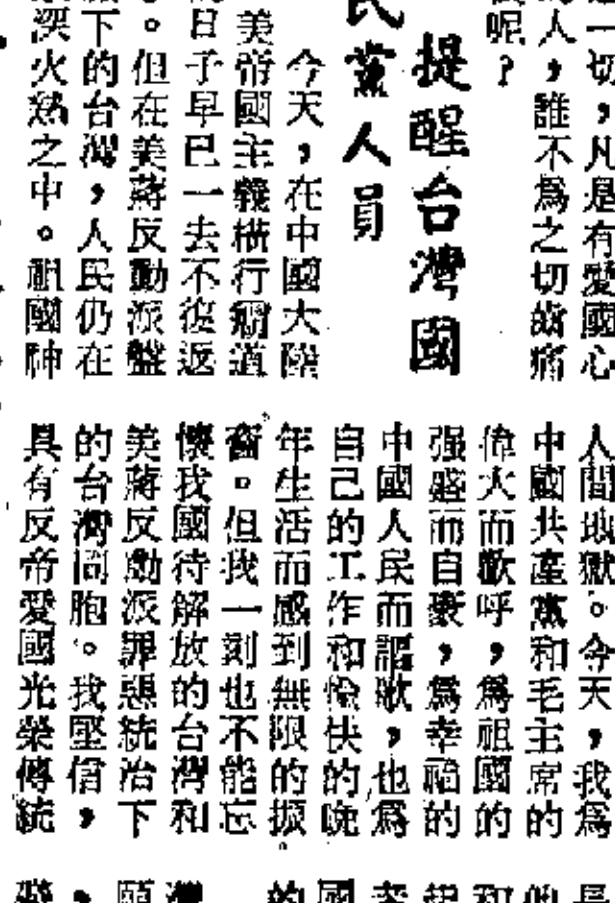 一切，凡是有愛國心
人，誰不爲之切齒痛
呢？
提醒台灣國
民黨人員
今天，在中國大陸
美帝國主義橫行霸道
日子早已一去不復返
。但在美蔣反動派盤
下的台灣，人民仍在
深火熱之中。祖國神
人間地獄。今天，我爲
中國共產黨和毛主席的
偉大而歡呼，爲祖國的
强盛而自豪，爲幸福的
中國人民而謳歌，也爲
自己的工作和愉快的晚
年生活而感到無限的振
奮。但我一刻也不能忘
懷我國待解放的台灣和
美蔣反動派罪惡統治下
的台灣同胞。我堅信，
具有反帝愛國光榮傳統